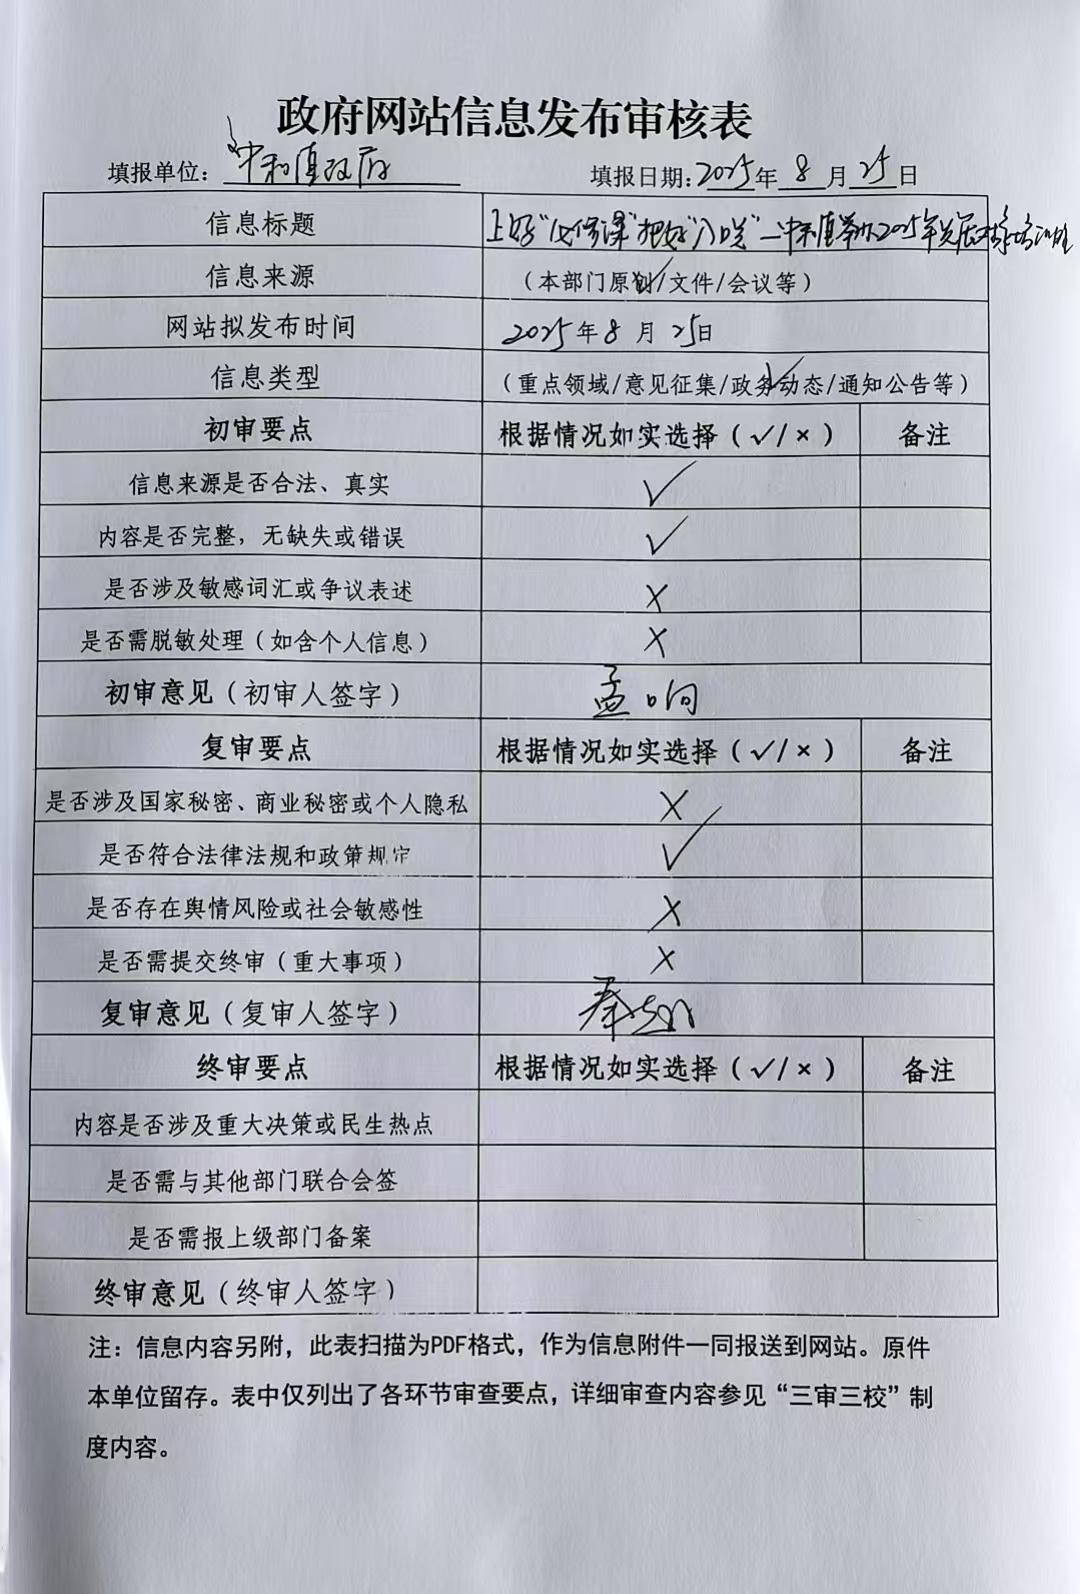 政府网站信息发布审核表
填报单位：中和镇政府 填报日期：2025年8月25日
信息标题 上好“必修课”把好“入口关”—中和镇举办2025年发展对象培训班
信息来源 （本部门原创/文件/会议等）
网站拟发布时间 2025年8月25日
信息类型 （重点领域/意见征集/政务动态/通知公告等）
初审要点 根据情况如实选择（√/×） 备注
信息来源是否合法、真实 √
内容是否完整，无缺失或错误 √
是否涉及敏感词汇或争议表述 ×
是否需脱敏处理（如含个人信息） ×
初审意见（初审人签字） 孟响
复审要点 根据情况如实选择（√/×） 备注
是否涉及国家秘密、商业秘密或个人隐私 ×
是否符合法律法规和政策规定 √
是否存在舆情风险或社会敏感性 ×
是否需提交终审（重大事项） ×
复审意见（复审人签字）
终审要点 根据情况如实选择（√/×） 备注
内容是否涉及重大决策或民生热点
是否需与其他部门联合会签
是否需报上级部门备案
终审意见（终审人签字）
注：信息内容另附，此表扫描为PDF格式，作为信息附件一同报送到网站。原件
本单位留存。表中仅列出了各环节审查要点，详细审查内容参见“三审三校”制
度内容。